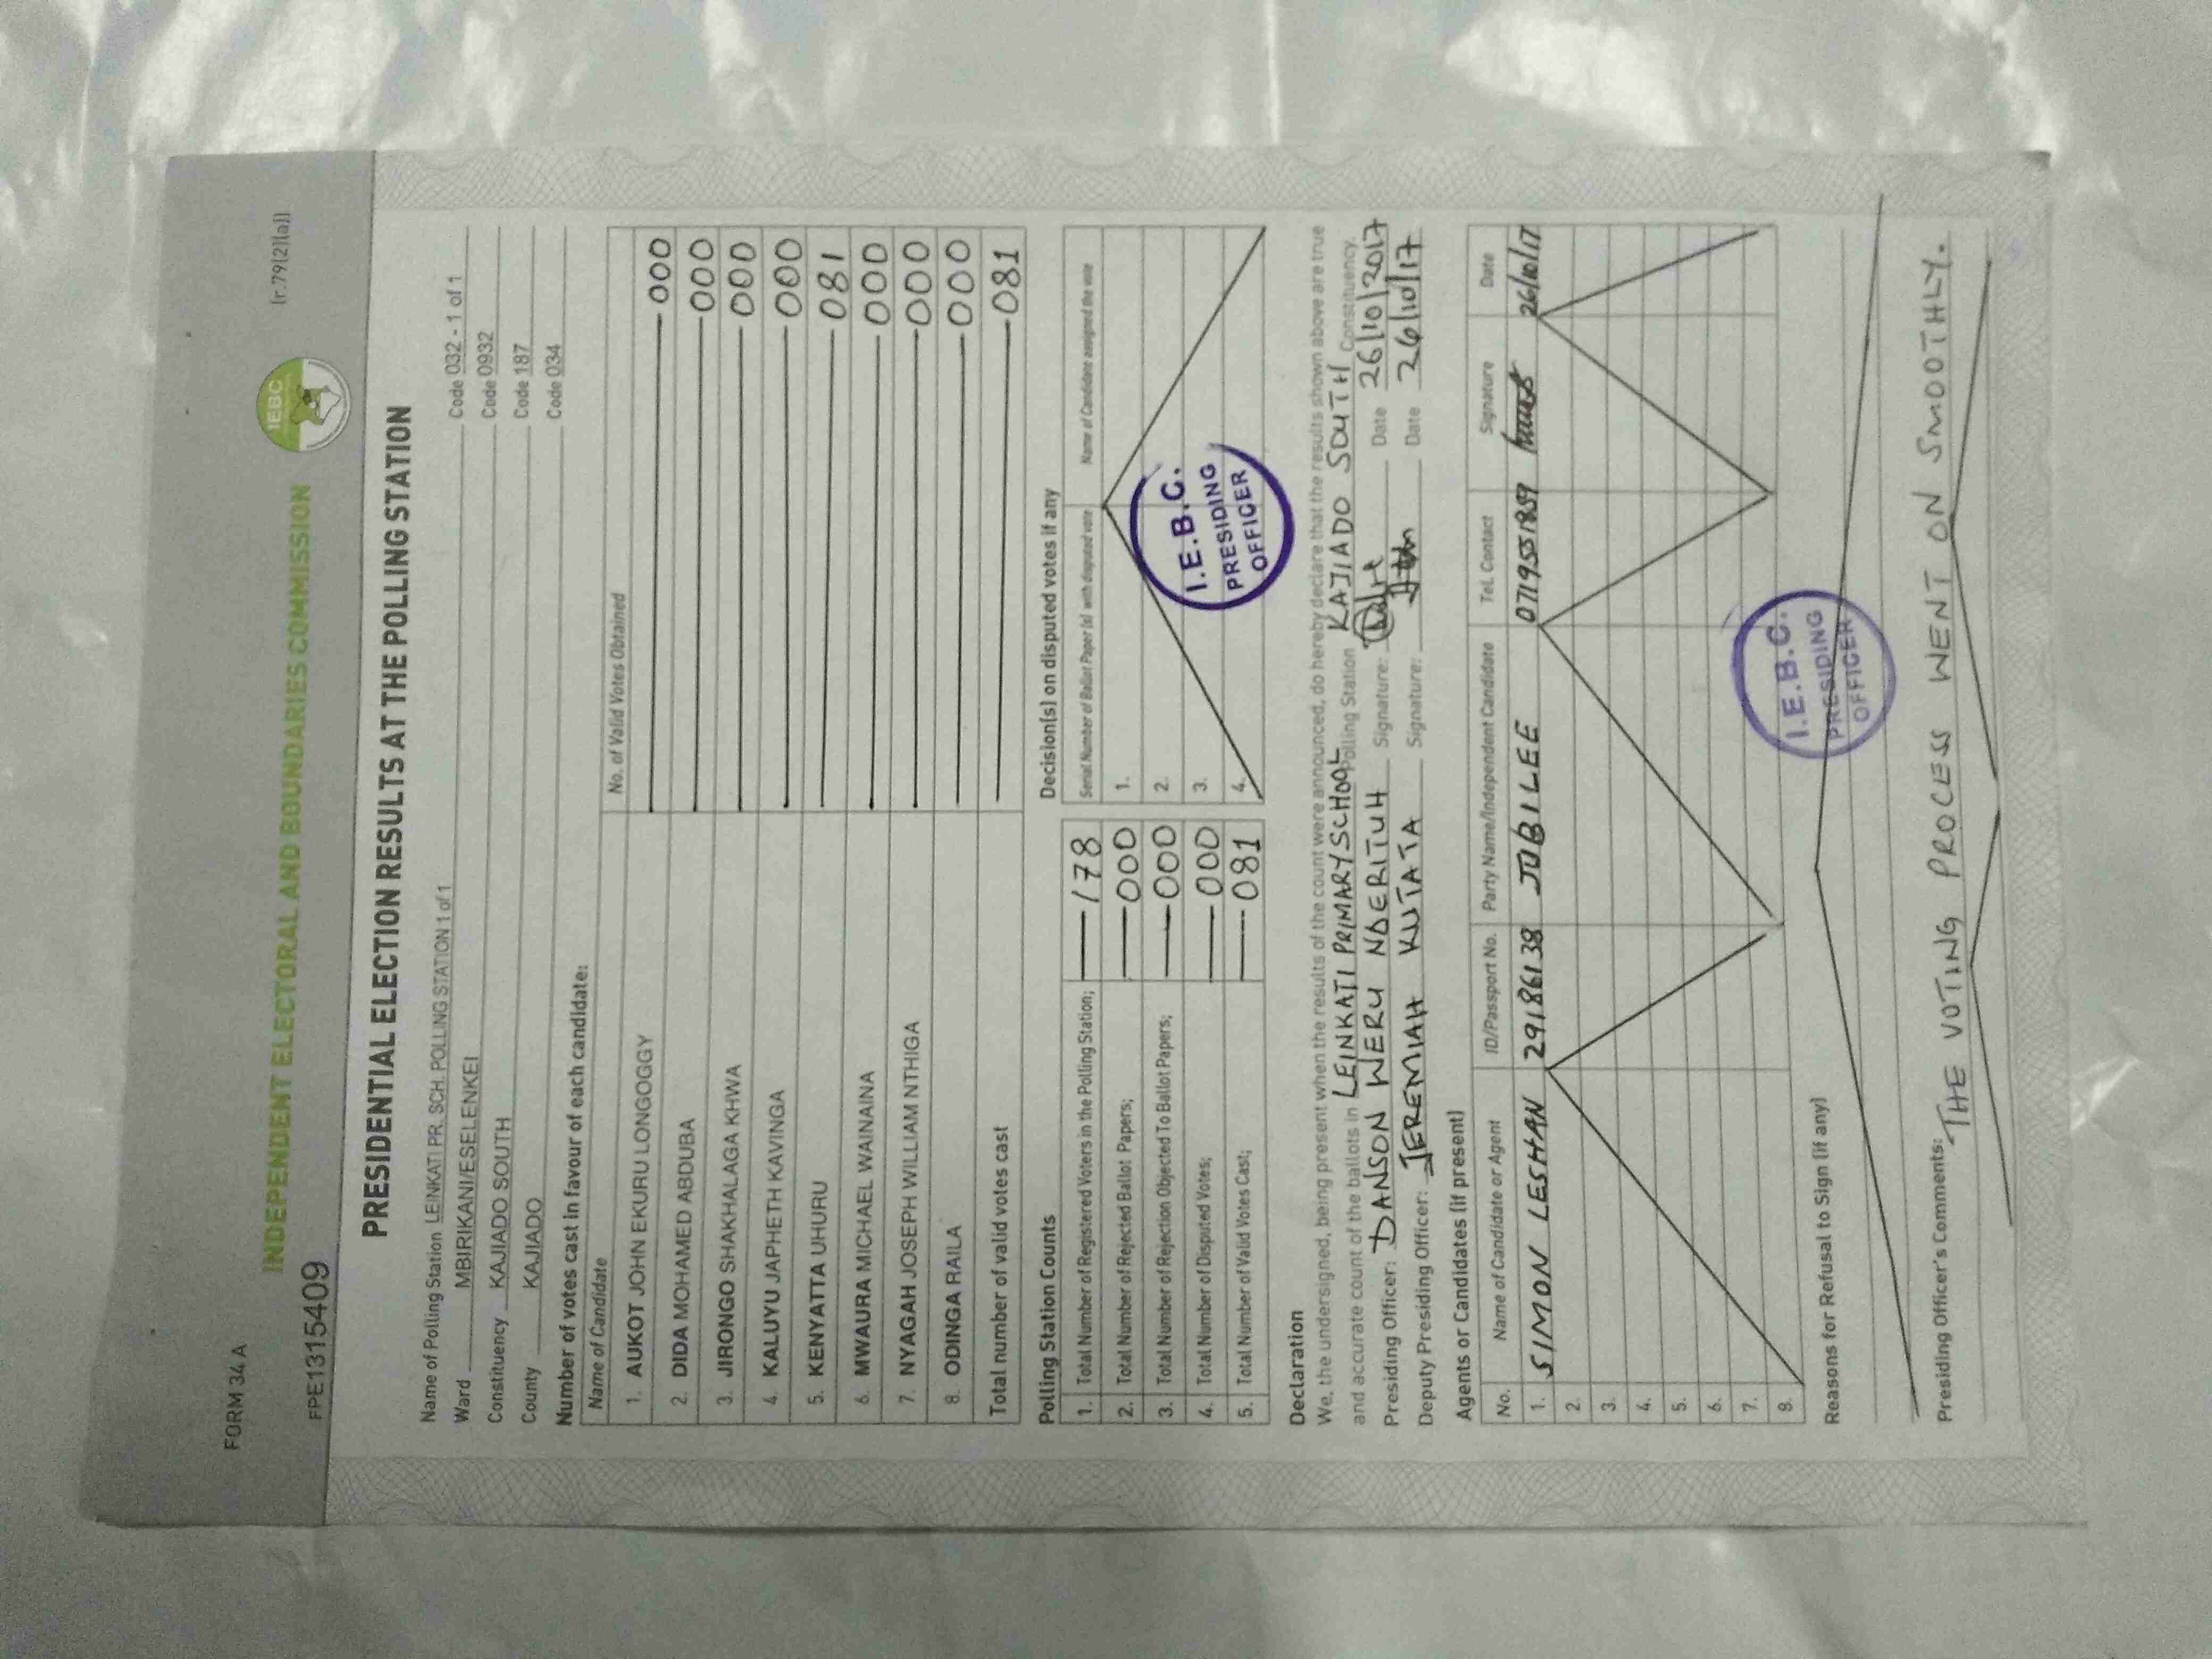 FORM 34 A
(r.79(2)(a))
INDEPENDENT ELECTORAL AND BOUNDARIES COMMISSION
IEBC
FPE1315409
PRESIDENTIAL ELECTION RESULTS AT THE POLLING STATION
Name of Polling Station LEINKATI PR. SCH. POLLING STATION 1 of 1 Code 032 - 1 of 1
Ward MBIRIKANI/ESELENKEI Code 0932
Constituency KAJIADO SOUTH Code 187
County KAJIADO Code 034
Number of votes cast in favour of each candidate:
Name of Candidate No. of Valid Votes Obtained
1. AUKOT JOHN EKURU LONGOGGY 000
2. DIDA MOHAMED ABDUBA 000
3. JIRONGO SHAKHALAGA KHWA 000
4. KALUYU JAPHETH KAVINGA 000
5. KENYATTA UHURU 081
6. MWAURA MICHAEL WAINAINA 000
7. NYAGAH JOSEPH WILLIAM NTHIGA 000
8. ODINGA RAILA 000
Total number of valid votes cast 081
Polling Station Counts
1. Total Number of Registered Voters in the Polling Station; 178
2. Total Number of Rejected Ballot Papers; 000
3. Total Number of Rejection Objected To Ballot Papers; 000
4. Total Number of Disputed Votes; 000
5. Total Number of Valid Votes Cast; 081
Decision(s) on disputed votes if any
Serial Number of Ballot Paper (s) with disputed vote Name of Candidate assigned the vote
1.
2.
3.
4.
I.E.B.C.
PRESIDING
OFFICER
Declaration
We, the undersigned, being present when the results of the count were announced, do hereby declare that the results shown above are true
and accurate count of the ballots in LEINKATI PRIMARY SCHOOL Polling Station KAJIADO SOUTH Constituency.
Presiding Officer: DANSON WERU NDERITUH Signature: Date 26/10/2017
Deputy Presiding Officer: JEREMIAH KUTATA Signature: Date 26/10/17
Agents or Candidates (if present)
No. Name of Candidate or Agent ID/Passport No. Party Name/Independent Candidate Tel. Contact Signature Date
1. SIMON LESHAN 29186138 JUBILEE 0719551859 26/10/17
2.
3.
4.
5.
6.
7.
8.
I.E.B.C.
PRESIDING
OFFICER
Reasons for Refusal to Sign (if any)
Presiding Officer's Comments:
THE VOTING PROCESS WENT ON SMOOTHLY.